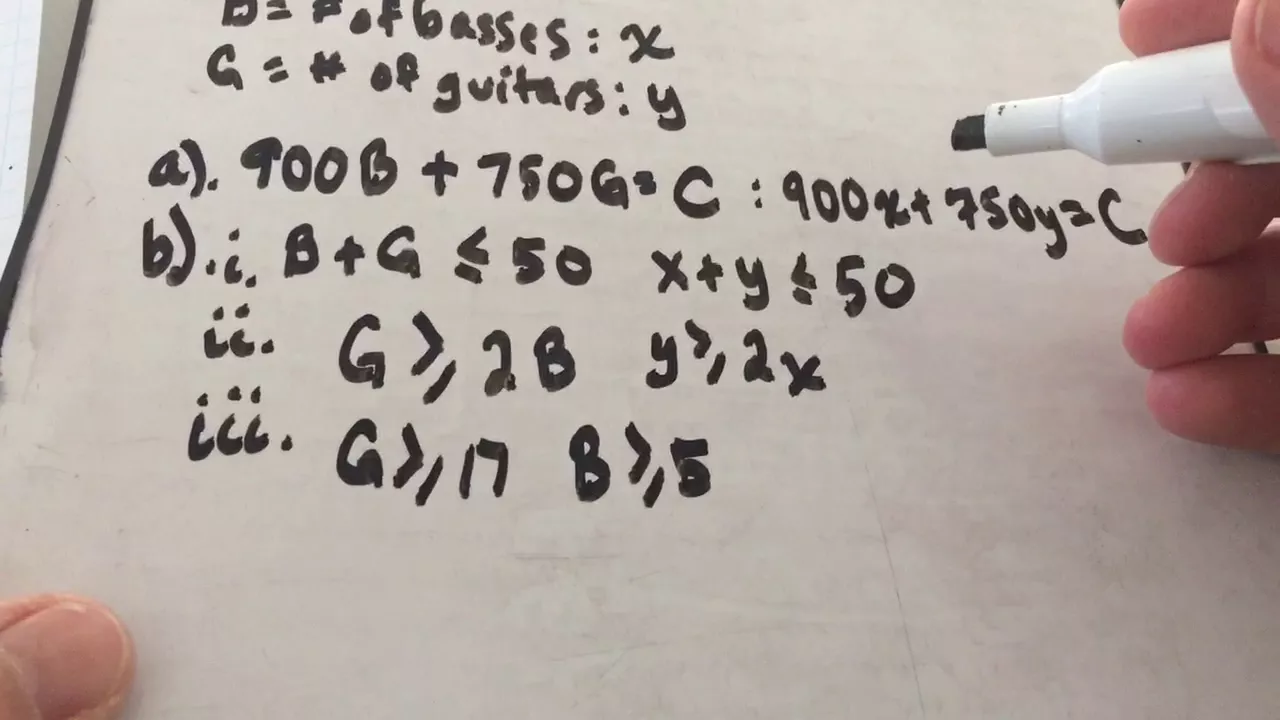 B = # of basses : x
G = # of guitars : y
a). 900B + 750G = C : 900x + 750y = C
b). i. B + G ≤ 50 x + y ≤ 50
ii. G ≥ 2B y ≥ 2x
iii. G ≥ 17 B ≥ 5